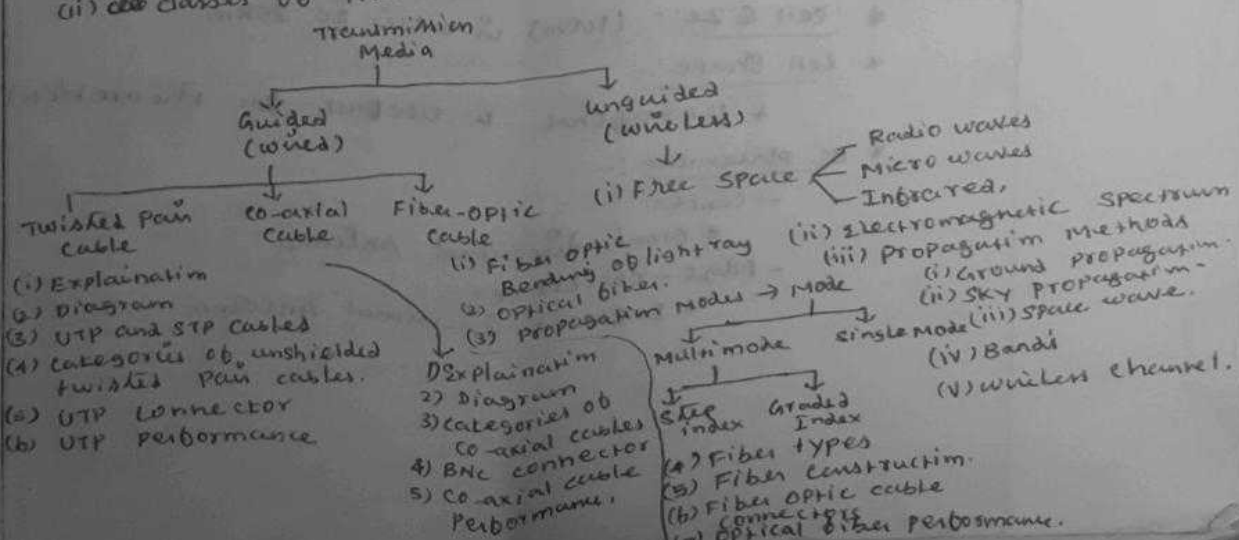 (ii) classes
Transmission
Media
Guided
(wired)
unguided
(wireless)
Twisted Pair
Cable
Co-axial
Cable
Fiber-optic
Cable
(i) Explaination
(2) Diagram
(3) UTP and STP Cables
(4) Categories of unshielded
twisted Pair cables.
UTP Connector
(6) UTP performance
1) Explaination
2) Diagram
3) Categories of
Co-axial cables
4) BNC connector
5) Co-axial cable
Performance.
(i) Fiber optic
Bending of light ray
(2) optical fiber.
(3) Propagation Modes → Mode
Multimode
Single Mode
Step
index
Graded
Index
(4) Fiber types
(5) Fiber construction.
(6) Fiber optic cable
connectors
optical fiber performance.
(i) Free Space
Radio waves
Micro waves
Infrared,
(ii) Electromagnetic Spectrum
(iii) Propagation Methods
(i) Ground propagation.
(ii) SKY propagation.
(iii) space wave.
(iv) Bands
(v) wireless channel.